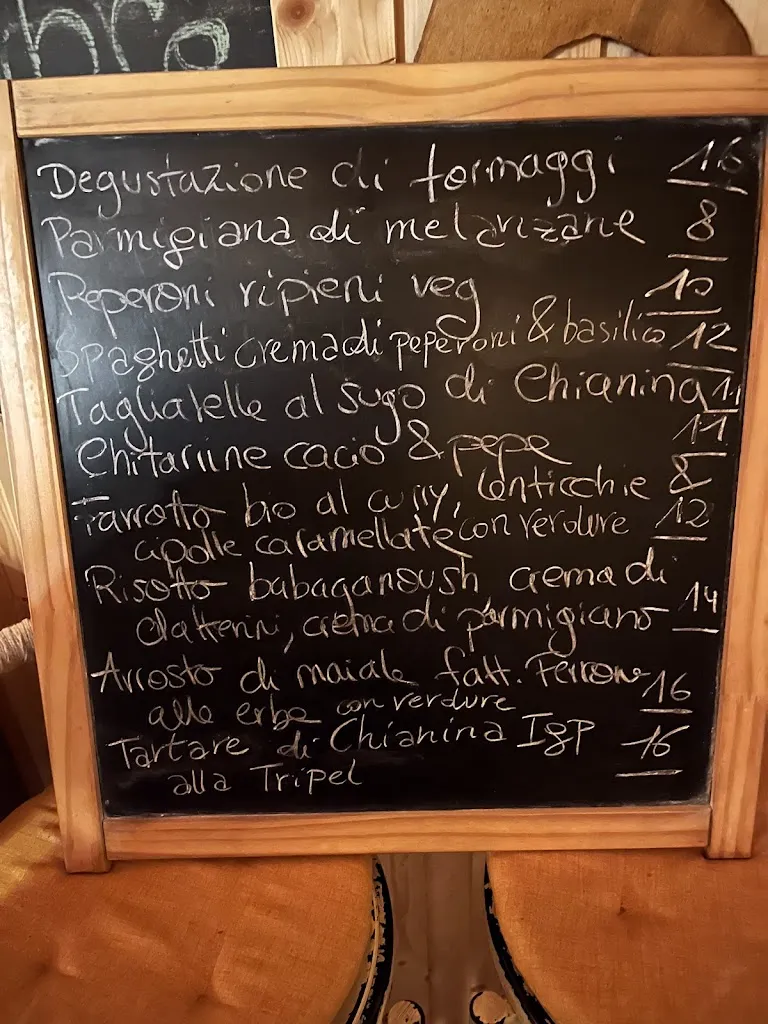 Degustazione di formaggi 16
Parmigiana di melanzane 8
Peperoni ripieni veg 10
Spaghetti crema di peperoni & basilico 12
Tagliatelle al sugo di Chianina
11
Chitarrine cacio & pepe 8
Farrotto bio al curry, lenticchie
cipolle caramellate con verdure 12
Risotto babaganoush crema di
datterini, crema di parmigiano 14
Arrosto di maiale fatt. Perrone
alle erbe con verdure 16
Tartare di Chianina IGP 16
alla Tripel